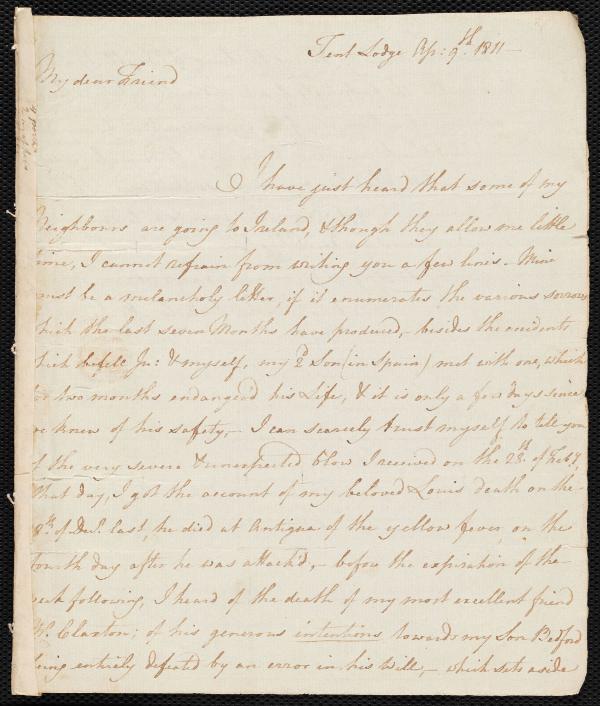 Tent Lodge Ap: 9th. 1811—
My dear Friend
I have just heard that some of my
Neighbours are going to Ireland, & though they allow me little
time, I cannot refrain from writing you a few lines. Mine
must be a melancholy letter, if it enumerates the various sorrows
which the last seven Months have produced,— besides the accidents
which befell Ju: & myself, my 2d. Son (in Spain) met with one, which
for two months endanger'd his Life, & it is only a few days since
we knew of his safety,— I can scarcely trust myself to tell you
of the very severe & unexpected blow I received on the 28th. of Feby,
that day, I got the account of my beloved Louis death on the
8th. of Decr. last, he died at Antigua of the yellow fever, on the
fourth day after he was attack'd,— before the expiration of the
week following, I heard of the death of my most excellent friend
Claxton; of his generous intentions towards my Son Bedford
being entirely defeated by an error in his Will,— which sets aside